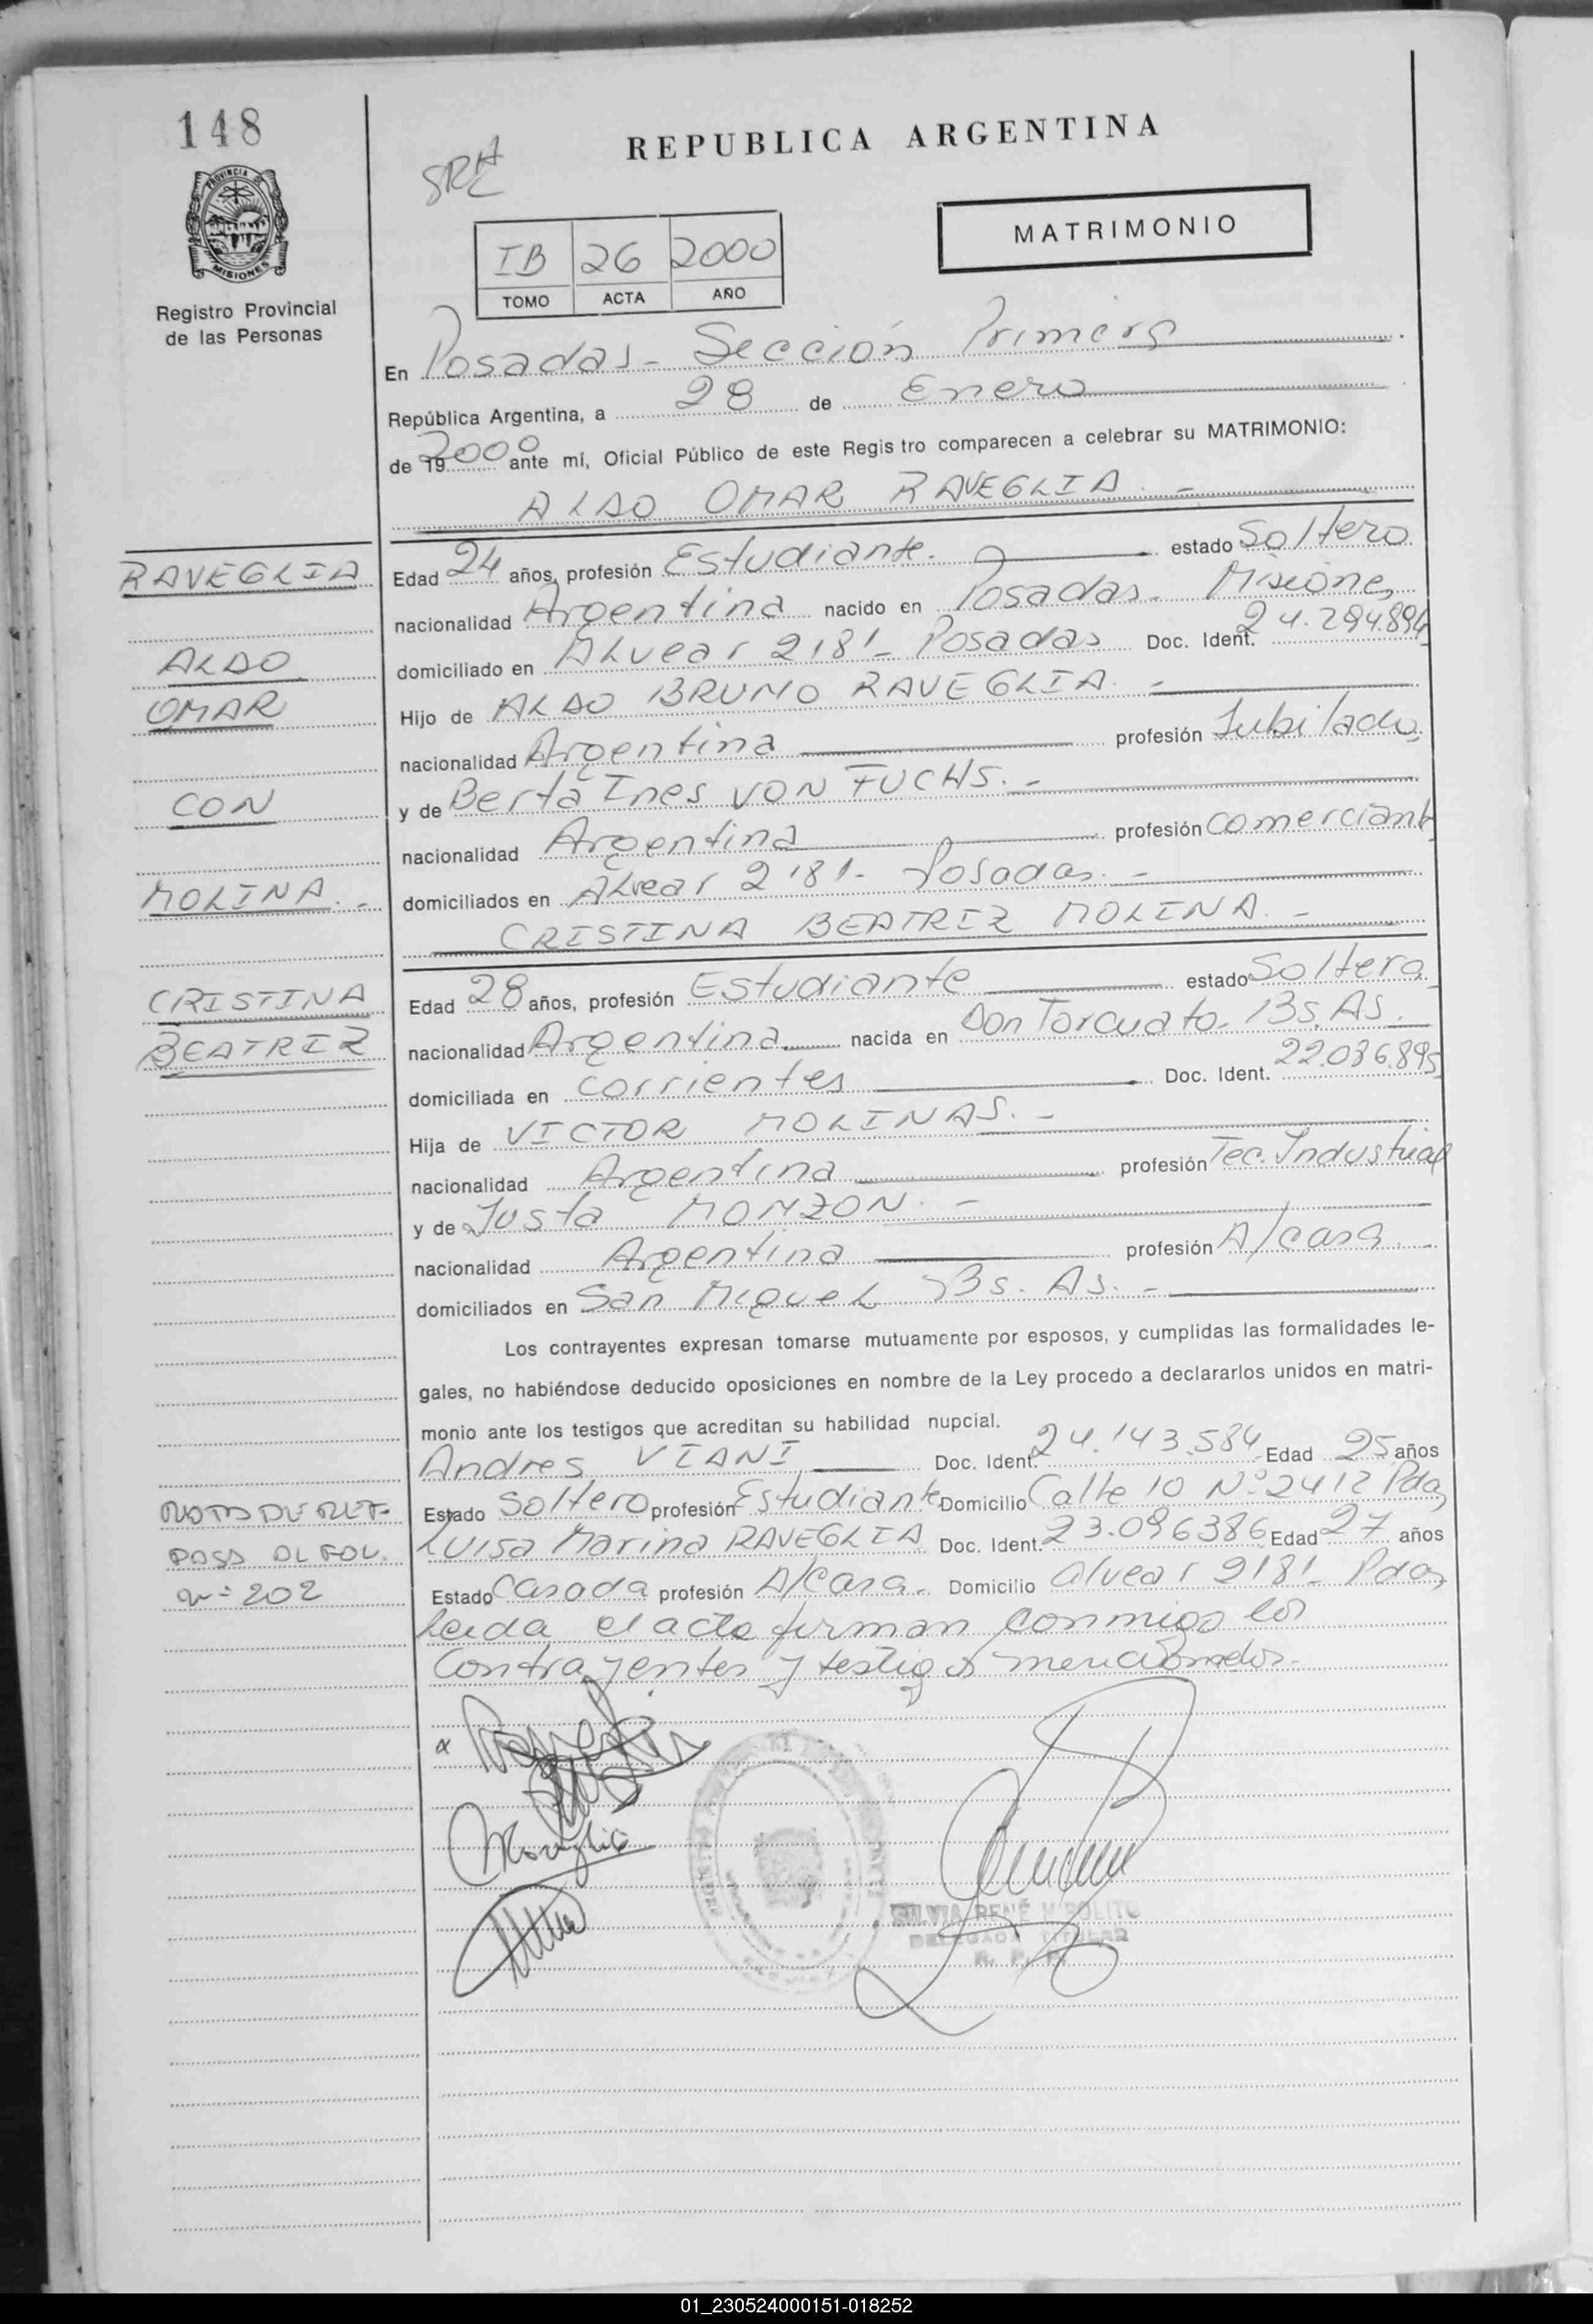 148
REPUBLICA ARGENTINA
PROVINCIA
MISIONES
Registro Provincial
de las Personas
MATRIMONIO
IB 26 2000
TOMO ACTA AÑO
En Posadas - Sección Primera
República Argentina, a 28 de Enero
de 19 2000 ante mí, Oficial Público de este Regis tro comparecen a celebrar su MATRIMONIO:
ALDO OMAR RAVEGLIA. -
RAVEGLIA
ALDO
OMAR
CON
MOLINA. -
CRISTINA
BEATRIZ
Edad 24 años, profesión Estudiante. estado Soltero
nacionalidad Argentina nacido en Posadas - Misiones
domiciliado en ALvear 2181 - Posadas Doc. Ident. 24.294894
Hijo de ALDO BRUNO RAVEGLIA. -
nacionalidad Argentina profesión Jubilado
y de Berta Ines VON FUCHS. -
nacionalidad Argentina profesión comerciante
domiciliados en ALvear 2181 - Posadas. -
CRISTINA BEATRIZ MOLINA. -
Edad 28 años, profesión Estudiante estado Soltera
nacionalidad Argentina nacida en Don Torcuato - Bs. As.
domiciliada en corrientes Doc. Ident. 22.036.895
Hija de VICTOR MOLINAS. -
nacionalidad Argentina profesión Tec. Industrial
y de Justa MONZON. -
nacionalidad Argentina profesión A/casa. -
domiciliados en San MigueL Bs. As. -
Los contrayentes expresan tomarse mutuamente por esposos, y cumplidas las formalidades le-
gales, no habiéndose deducido oposiciones en nombre de la Ley procedo a declararlos unidos en matri-
monio ante los testigos que acreditan su habilidad nupcial.
Andres VIANI Doc. Ident. 24.143.584 Edad 25 años
Estado Soltero profesión Estudiante Domicilio Calle 10 Nº 2412 Pdas
Luisa Marina RAVEGLIA Doc. Ident. 23.096386 Edad 27 años
Estado Casada profesión A/Casa. Domicilio alvear 2181 - Pdas
NOTA DE REF.
PASA AL FOL.
Nº 202
Leida el acta firman conmigo los
Contrayentes y testigos mencionados.
SILVIA RENÉ HIPOLITO
DELEGADA TITULAR
R. P. P.
01_230524000151-018252